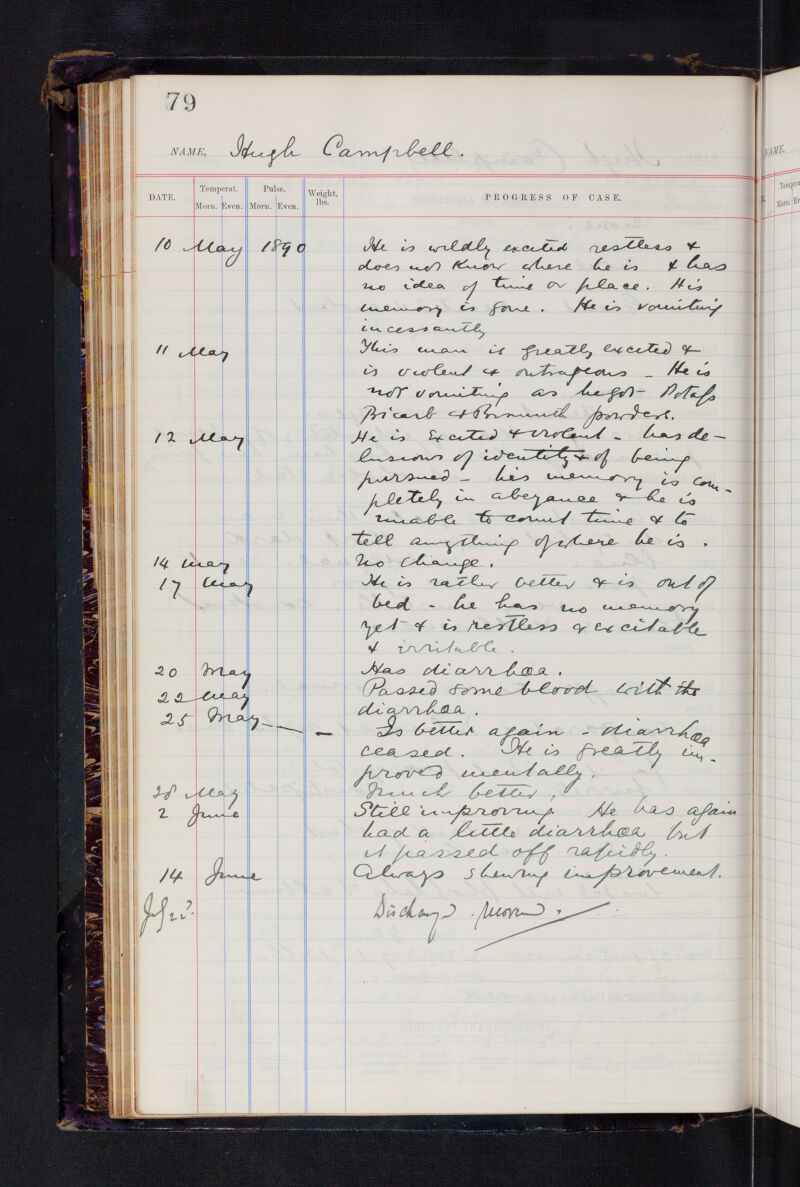 79
NAME, Hugh Campbell.
DATE. Temperat. Pulse. Weight, lbs. PROGRESS OF CASE.
Morn. Even. Morn. Even.
10 May 1890 He is wildly excited restless &
does not know where he is & has
no idea of time or place. His
memory is gone. He is vomiting
incessantly
11 May This man is greatly excited &
is violent & outrageous - He is
not vomiting as he got Potass
Bicarb & Bismuth powders.
12 May He is excited & violent - has de-
lusions of identity & of being
pursued - his memory is com-
pletely in abeyance & he is
unable to count time & to
tell anything of where he is.
14 May No change.
17 May He is rather better & is out of
bed - he has no memory
yet & is restless & excitable
& irritable.
20 May Has diarrhœa.
22 May Passed some blood with the
diarrhœa.
25 May — — Is better again - diarrhœa
ceased. He is greatly im-
proved mentally.
28 May Much better,
2 June Still improving He has again
had a little diarrhœa but
it passed off rapidly.
14 June Always shewing improvement.
July 22? Discharged
NAME,